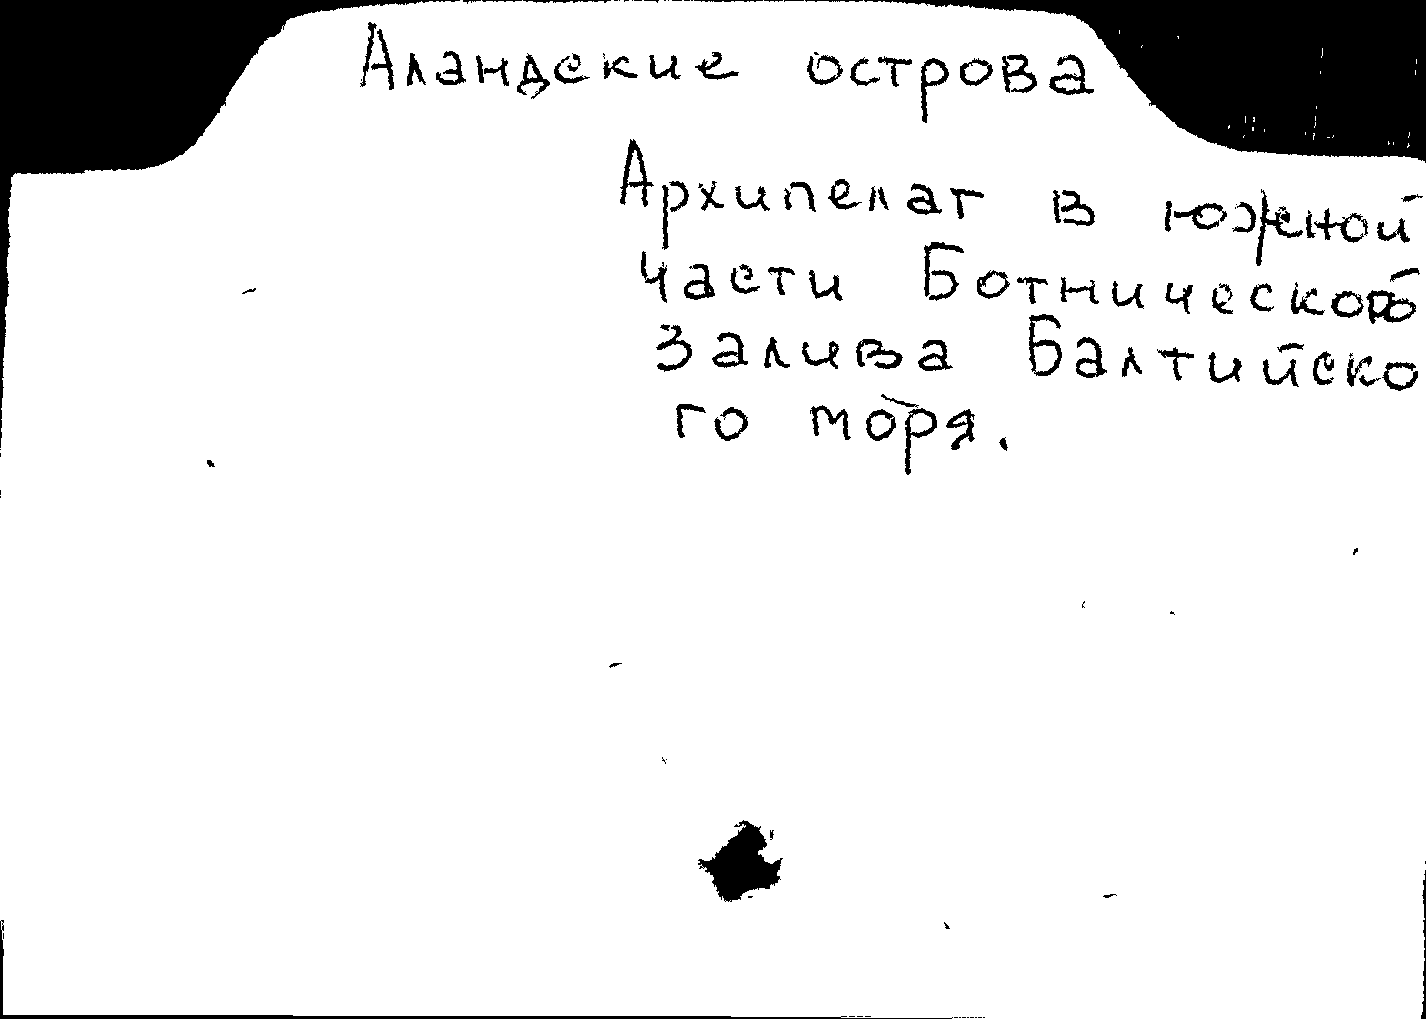 Аландские острова
Архипелаг в южной
части Ботнического
залива Балтийско
го моря.